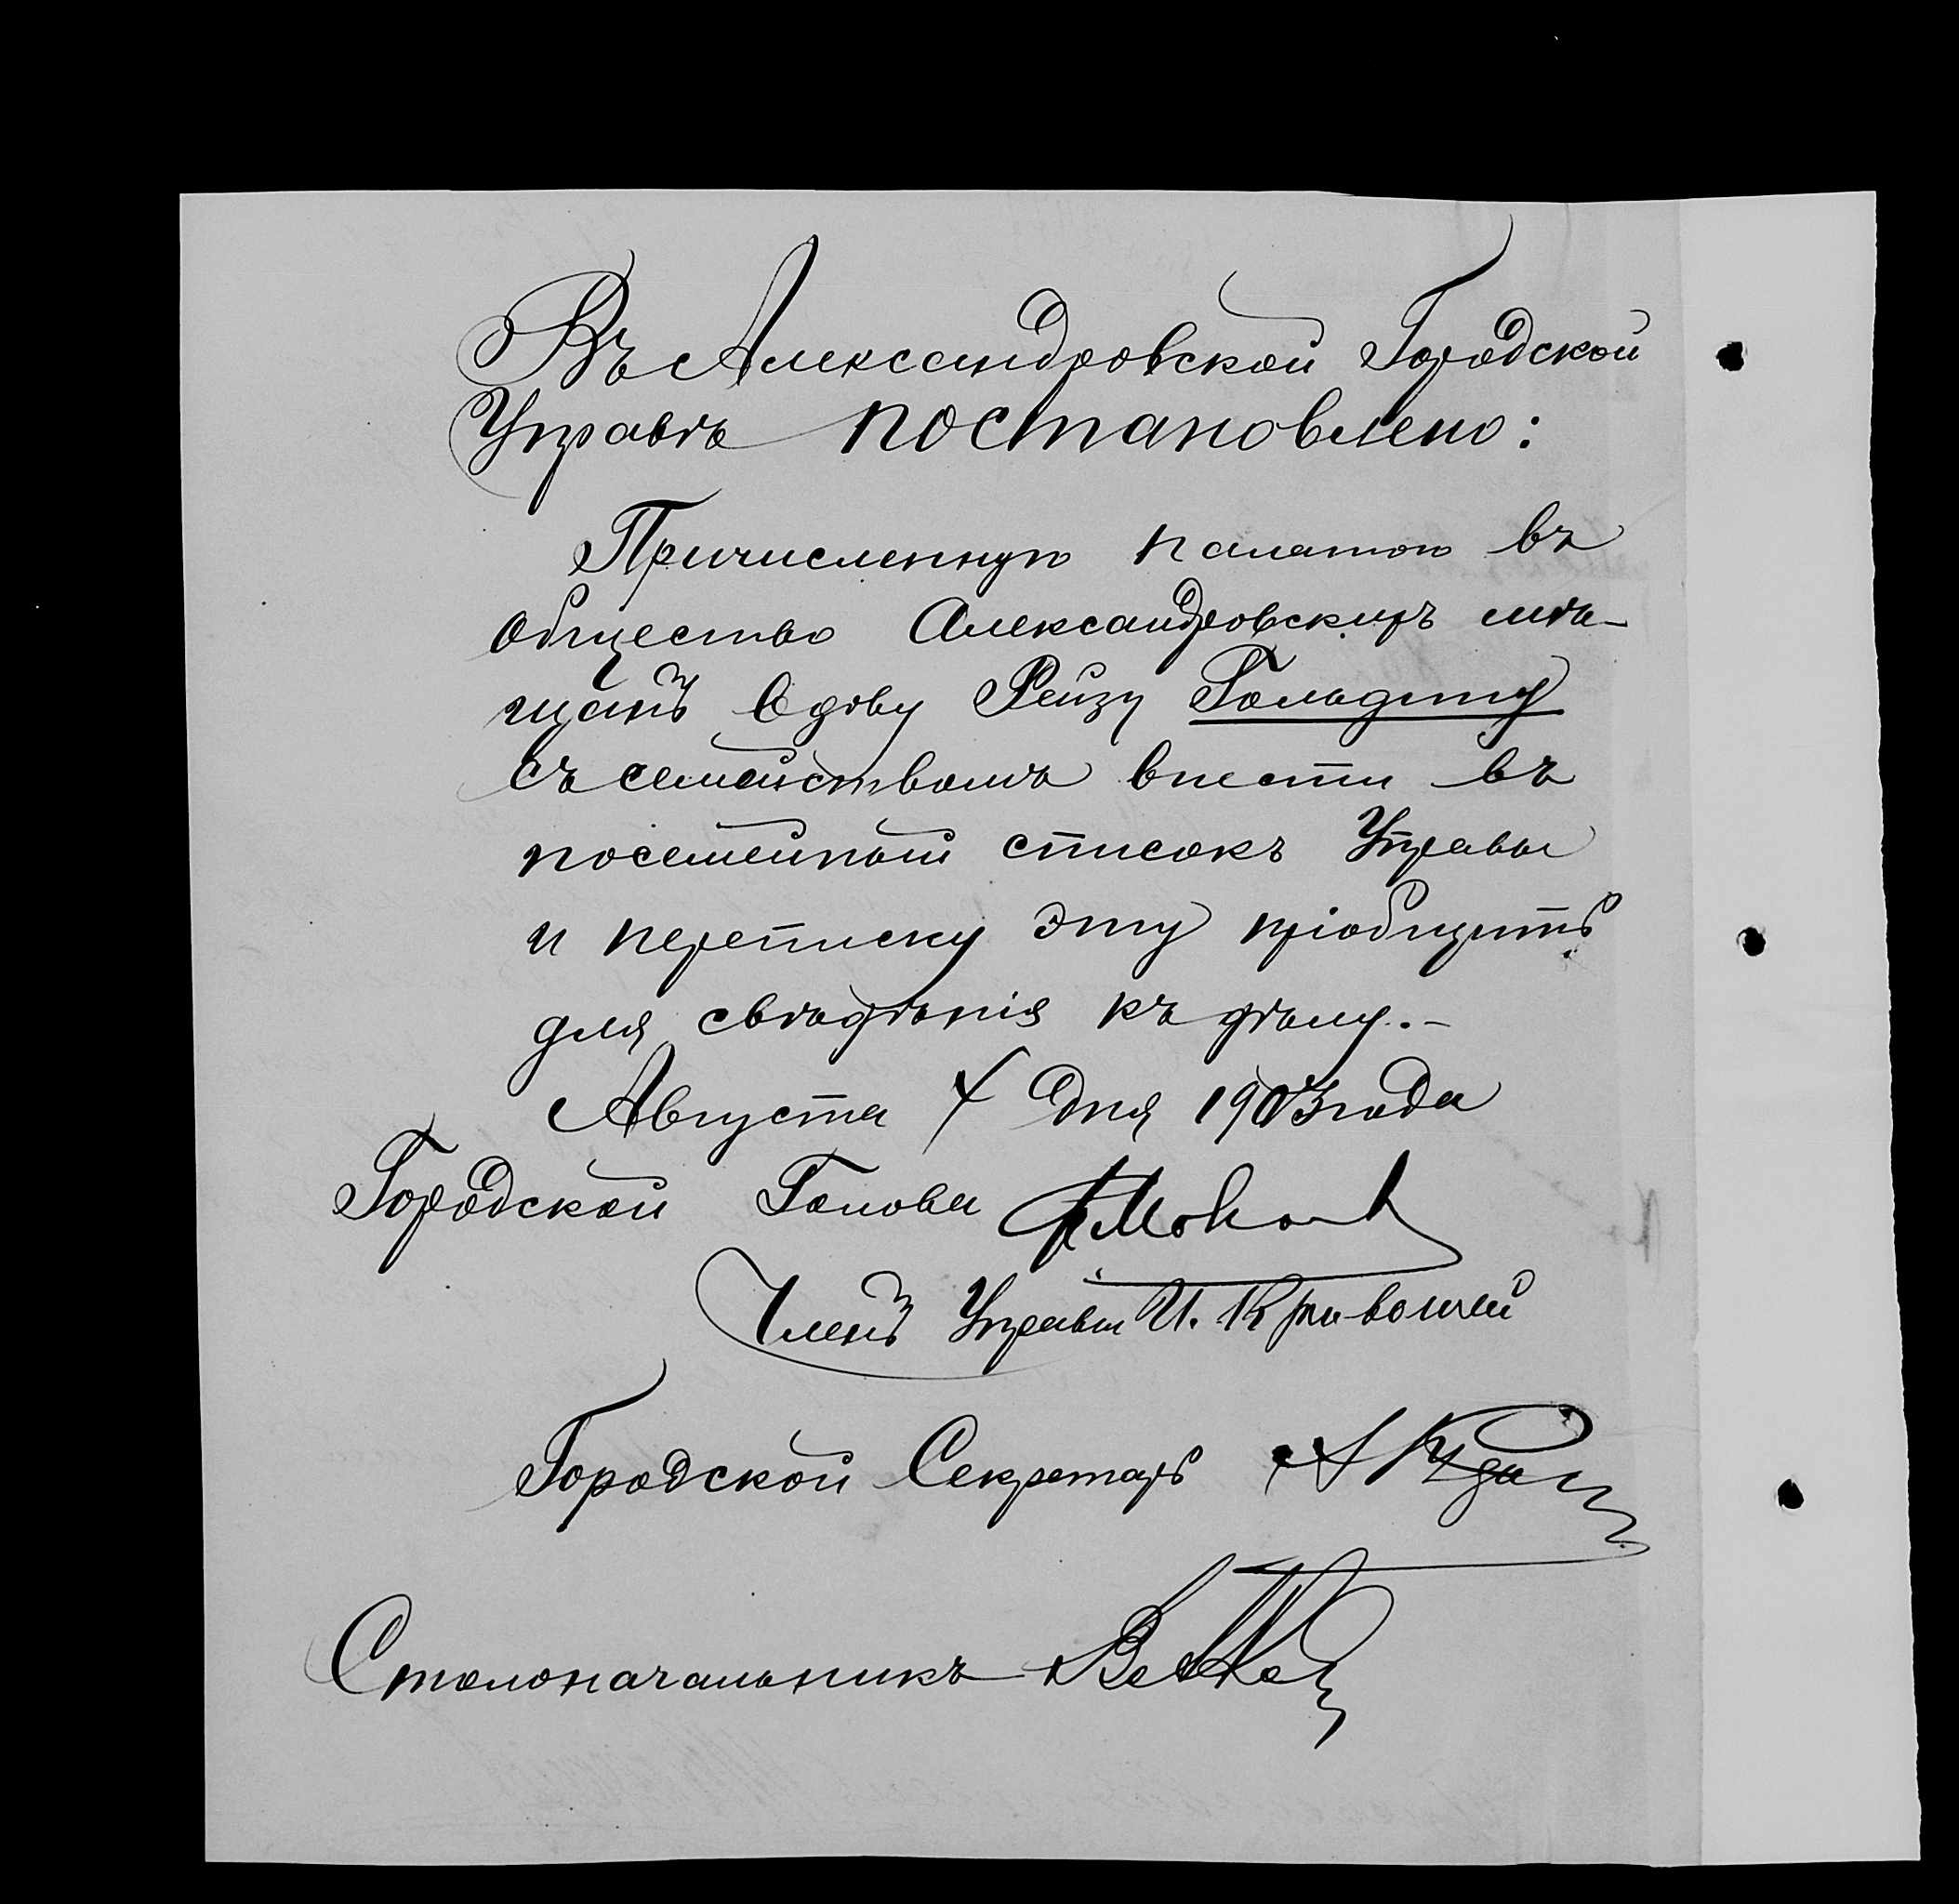 Въ Александровской Городской
Управѣ постановлено:
Причисленную палатою въ
общество Александровскихъ мѣ-
щанъ вдову Рейзу
съ семействомъ внести въ
посемейный списокъ Управы
и переписку эту пріобщить
для свѣдѣнія къ дѣлу.-
Августа дня 1903 года
Городской Голова
Членъ Управы И. Кривошей
Городской Секретарь
Столоначальникъ